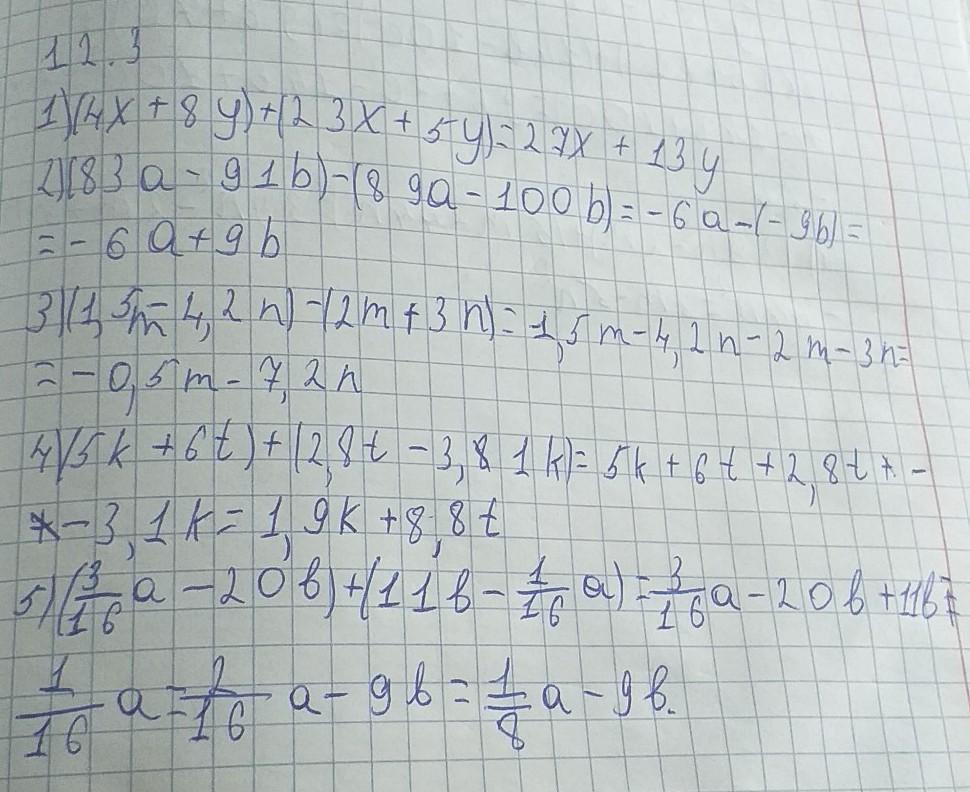 12.3
1)(4x + 8y)+(23x + 5y)=27x + 13y
2)(83a - 91b)-(89a - 100b)=-6a-(-9b)=
=-6a+9b
3)(1,5m-4,2n)-(2m+3n)=1,5m-4,2n-2m-3n=
=-0,5m-7,2n
4)(5k+6t)+(2,8t-3,81k)=5k+6t+2,8t+-
-3,1k=1,9k+8,8t
5)(3/16a-20b)+(11b-1/16a)=3/16a-20b+11b-
1/16a=2/16a-9b=1/8a-9b.